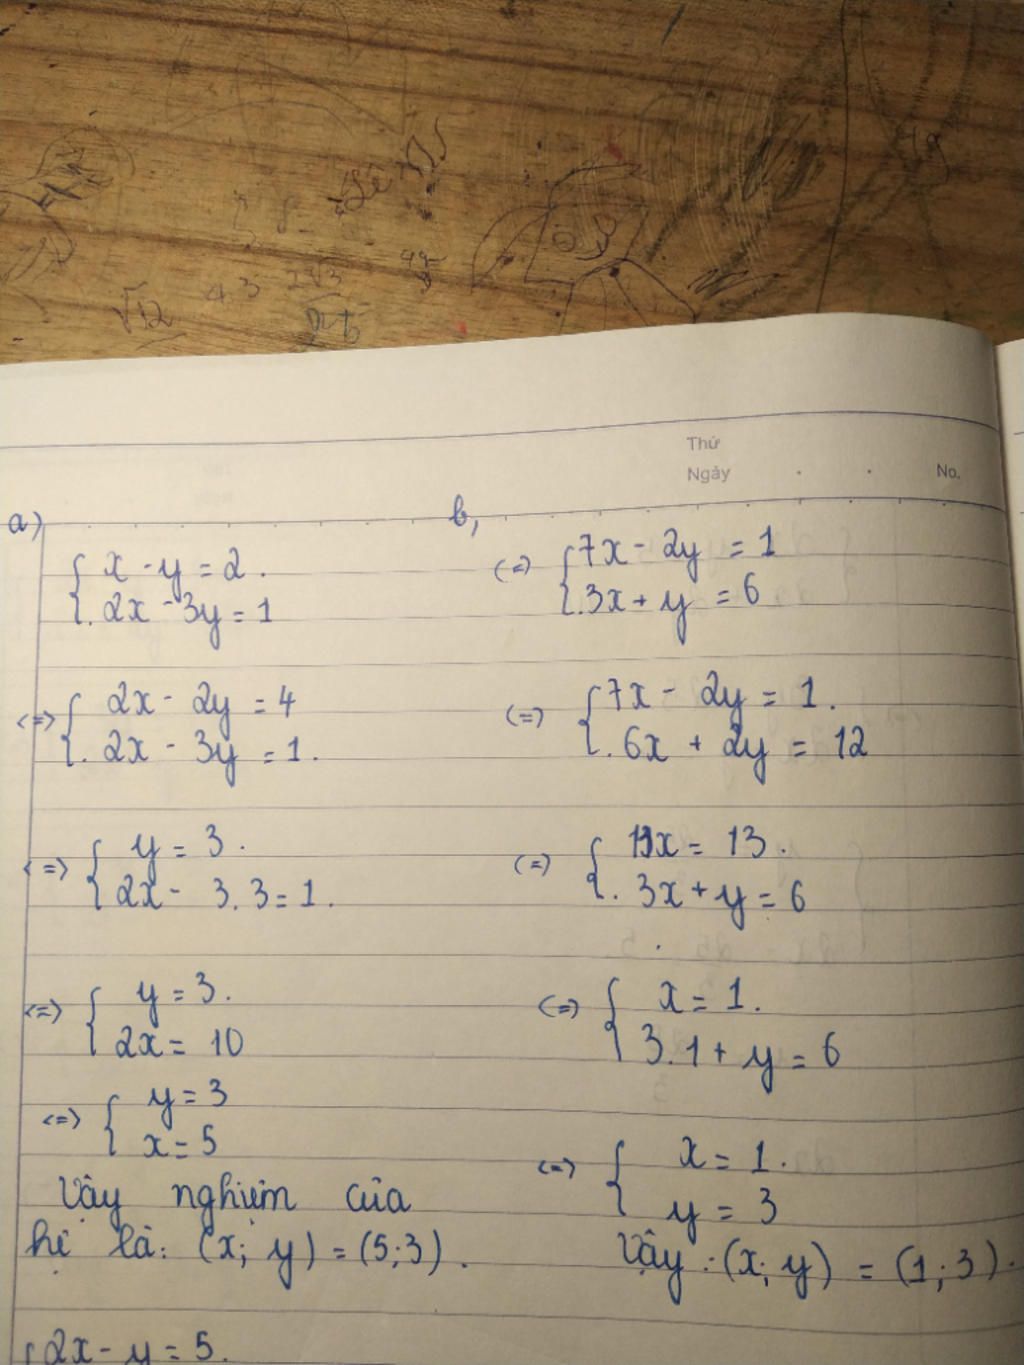 √12 4 3 2√3
Thứ
Ngày No.
a)
{ x - y = 2.
{ 2x - 3y = 1
<=> { 2x - 2y = 4
{ 2x - 3y = 1.
<=> { y = 3.
{ 2x - 3.3 = 1.
<=> { y = 3.
{ 2x = 10
<=> { y = 3
{ x = 5
Vậy nghiệm của
hệ là: (x; y) = (5;3).
{ 2x - y = 5.
b,
(=) { 7x - 2y = 1
{ 3x + y = 6
(=) { 7x - 2y = 1.
{ 6x + 2y = 12
(=) { 13x = 13.
{ 3x + y = 6
(=) { x = 1.
{ 3.1 + y = 6
(=) { x = 1.
{ y = 3
Vậy : (x; y) = (1;3).